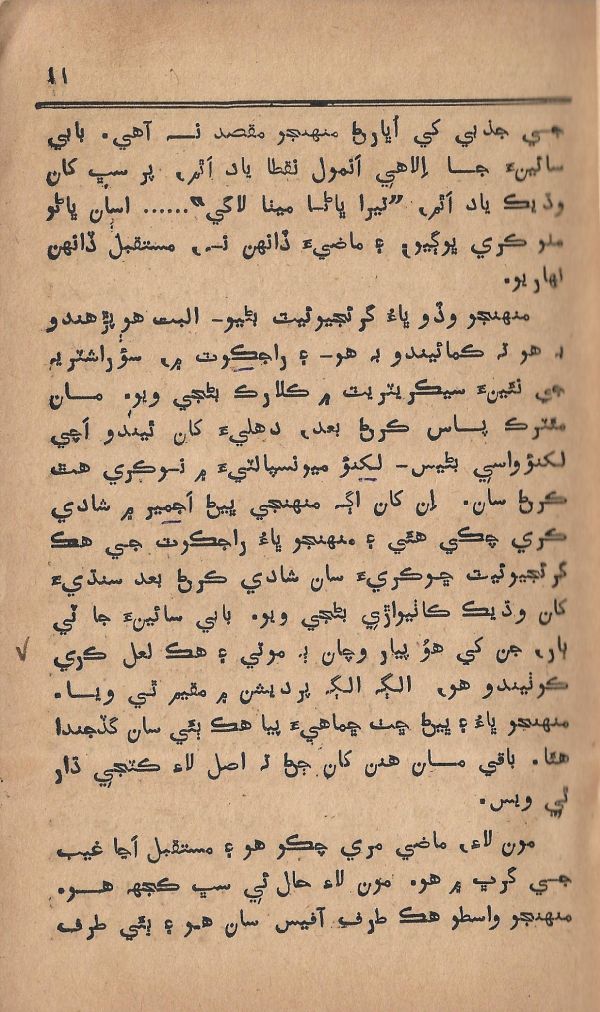 ۱۱
جي جذبي کي اڀارڻ منهنجو مقصد نہ آهي. بابي
سائينءَ جا اِلاهي اَنمول نقطا ياد اَٿم، پر سڀ کان
وڌيڪ ياد اَٿم، ”تيرا ڀاڻا ميٺا لاگي“...... اسان ڀاڻو
مڃو ڪري ڀوڳيو، ۽ ماضيءَ ڏانهن نہ، مستقبل ڏانهن
نهاريو.
منهنجو وڏو ڀاءُ گرئجيوئيٽ بڻيو- البت هو پڙهندو
بہ هو تہ ڪمائيندو بہ هو- ۽ راجڪوٽ ۾، سؤراشٽريہ
جي نئينءَ سيڪريٽريٽ ۾ ڪلارڪ بڻجي ويو. مان
مئٽرڪ پاس ڪرڻ بعد، دهليءَ کان ٿيندو اَچي
لکنؤ واسي بڻيس- لکنؤ ميونسپالٽيءَ ۾ نوڪري هٿ
ڪرڻ سان. اِن کان اڳہ منهنجي ڀيڻ اَجمير ۾ شادي
ڪري چڪي هئي ۽ منهنجو ڀاءُ راجڪوٽ جي هڪ
گرئجيوئيٽ ڇوڪريءَ سان شادي ڪرڻ بعد سنڌيءَ
کان وڌيڪ ڪاٺيواڙي بڻجي ويو. بابي سائينءَ جا ٽي
ٻار، جن کي هوُ پيار وچان ٻہ موتي ۽ هڪ لعل ڪري
ڪوٺيندو هو، الڳہ الڳہ پرديشن ۾ مقيم ٿي ويا.
منهنجو ڀاءُ ۽ ڀيڻ ڇٺ ڇماهيءَ پيا هڪ ٻئي سان گڏجندا
هئا. باقي مان هنن کان ڄڻ تہ اصل لاءِ ڪٽجي ڌار
ٿي ويس.
مون لاءِ، ماضي مري چڪو هو ۽ مستقبل اَڃا غيب
جي گرڀ ۾ هو. مون لاءِ حال ئي سڀ ڪجهہ هو.
منهنجو واسطو هڪ طرف آفيس سان هو ۽ ٻئي طرف